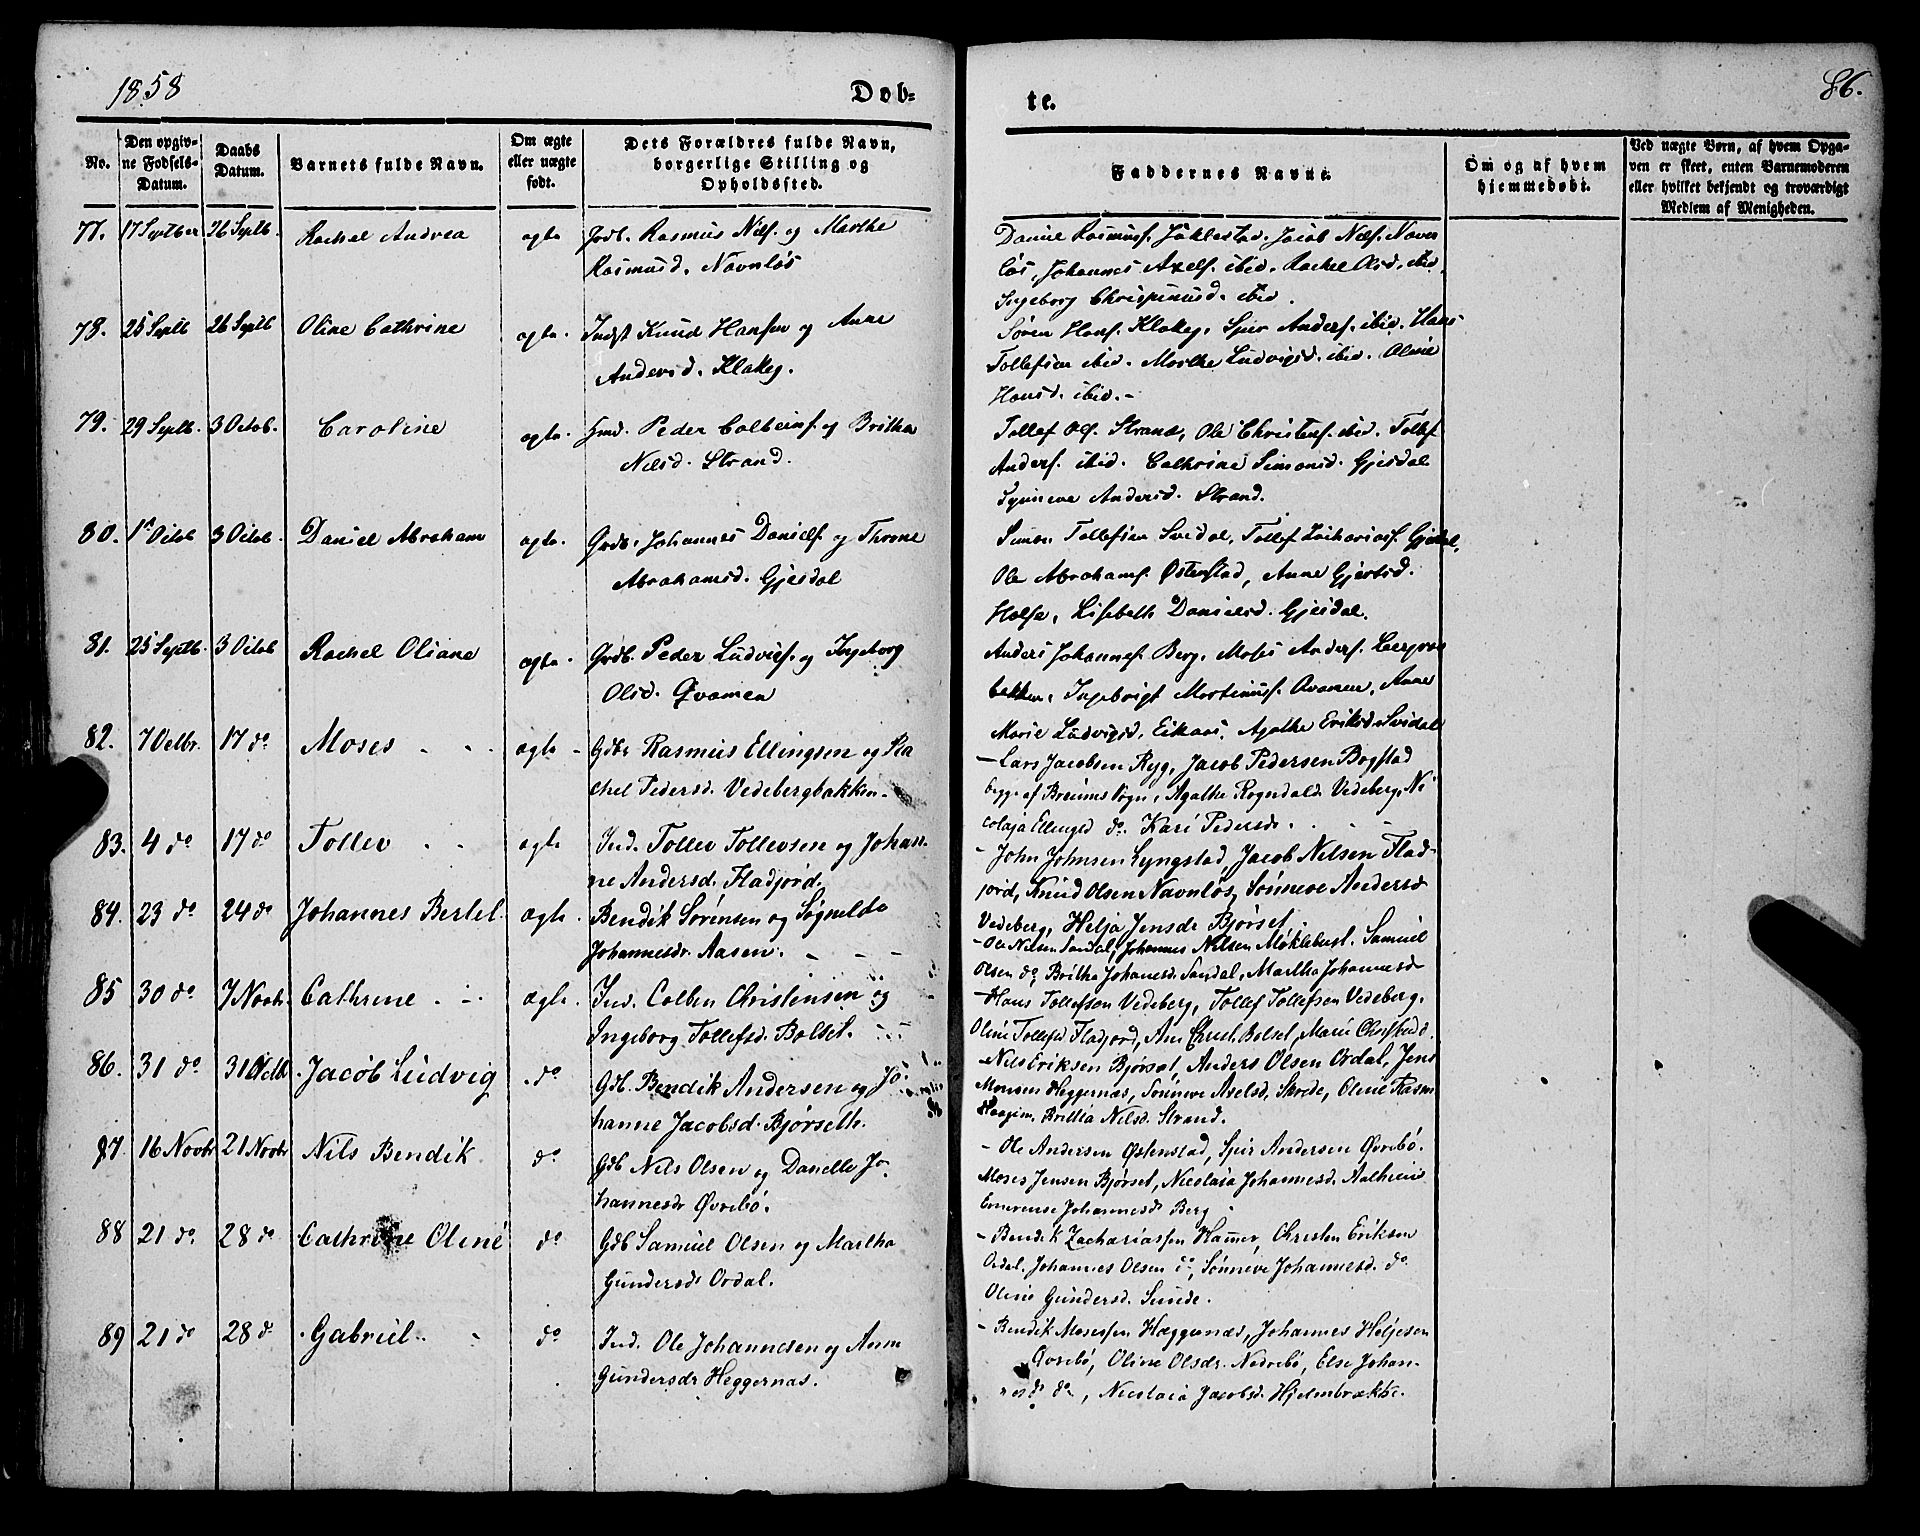 1858
Døb-
te.
86.
No.
Den opgiv-
ne Fødsels-
Datum.
Daabs
Datum.
Barnets fulde Navn.
Om ægte
eller uægte
født.
Dets Forældres fulde Navn,
borgerlige Stilling og
Opholdssted.
Faddernes Navne.
Om og af hvem
hjemmedøbt.
Ved uægte Børn, af hvem Opga-
ven er skeet, enten Barnemoderen
eller hvilket bekjendt og troværdigt
Medlem af Menigheden.
77. 17 Septber 26 Septb. Rachel Andrea ægte Grdb. Rasmus Nilss. og Marthe
Rasmusd. Navnløs
Daniel Rasmuss. Jacob Nilss. Navn
løs, Johannes Axels. ibid. Rachel Olsd. ibid.
Ingeborg ibid.
78. 25 Septb 26 Septb Oline Cathrine ægte. Indst Knud Hansen og Anne
Andersd. Klakeg.
Søren Hans. Klakeg, Spir Anders. ibid. Hans
Tollefsen ibid. Marthe Ludvigsd. ibid. Oline
Hansd. ibid.-
79. 29 Septb. 3 Octob. Caroline ægte. Hmd. Peder Colbeins. og Britha
Nilsd. Strand.
Tollef Ols. Strand, Ole Christens. ibid. Tollef
Anders. ibid. Cathrine Simonsd. Gjesdal
Synneve Andersd. Strand.
80. 1st Octob 3 Octob. Daniel Abraham ægte. Grdb. Johannes Daniels. og Throne
Abrahamsd. Gjesdal
Simon Tollefsen Svidal, Tollef Zacharias. Gjesdal,
Ole Abrahams. Østenstad, Anne Gjertsd.
Lisebeth Danielsd. Gjesdal.
81. 25 Septb. 3 Octob Rachel Oliane ægte. Grdb. Peder Ludvigs. og Ingeborg
Olsd. Qvamen
Anders Johannes. Berg, Moses Anders.
bakken, Ingebrigt Martinus. Qvamen, Anne
Marie Ludvigsd. Eikaas, Agathe Eriksd. Svidal
82. 7 Octbr. 17 do Moses ægte Gdbr Rasmus Ellingsen og Ra
chel Pedersd. Vedebergbakken
- Lars Jacobsen Ryg, Jacob Pedersen Bogstad
begge af Breims Sogn, Agathe Rognald. Vedeberg, Ni
colaja Ellingsd do. Kari Pedersdr.
83. 4 do 17 do Tollev ægte Ind. Tollev Tollevsen og Johan-
ne Andersd. Fladjord.
- John Johnsen Lyngstad, Jacob Nilsen Flad-
jord, Knud Olsen Navnløs, Sönneve Andersd
Vedeberg, Helja Jensdr Bjørset.
84. 23 do 24 do Johannes Bertel. ægte. Bendik Sörensen og Søgnelde
Johannesdr. Aasen.
- Ole Nilsen Sandal, Johannes Nilsen Møklebust. Samuel
Olsen do, Britha Johanesd. Sandal, Martha Johannesd
85 30 do 7 Novbr. Cathrine ægte. Ind. Colben Christensen og
Ingeborg Tollefsd. Bolset.
- Hans Tollefson Vedeberg, Tollef Tollefsen Vedeberg,
Oline Tollefsd. Fladjord, Ane Christ. Bolset, Marie
86. 31 do 31 Octb. Jacob Ludvig do Gdb. Bendik Andersen og Jo-
hanne Jacobsd. Bjørseth.
- Nils Eriksen Bjørset, Anders Olsen Ordal, Jens
Monsen Heggernæs, Sönneve Axelsd. Skrede, Oline Rasm
Britha Nilsd. Strand.
87. 16 Novbr 21 Novbr Nils Bendik do Gdb Nils Olsen og Danelle Jo-
hannesdr Øvrebö.
- Ole Andersen Østenstad, Spir Andersen Øvrebö.
Moses Jensen Bjørset, Nicolaia Johannesd.
Emerense Johannesdr Berg
88 21 do. 28 do Cathrine Oline do Gdb Samuel Olsen og Martha
Gundersdr Ordal.
- Bendik Zachariassen Hammer, Christen Eriksen
Ordal, Johannes Olsen do, Sönneve Johannesd. do
Oline Gundersd. Sunde.
89 21 do 28 do Gabriel do Ind. Ole Johannesen og Anne
Gundersdr Heggernæs.
- Bendik Mosessen Hæggernæs, Johannes Heljesen
Qvrebö, Oline Olsdr. Nedrebö, Else Johan-
nesd do, Nicolaia Jacobsd. Hjelmbrække.